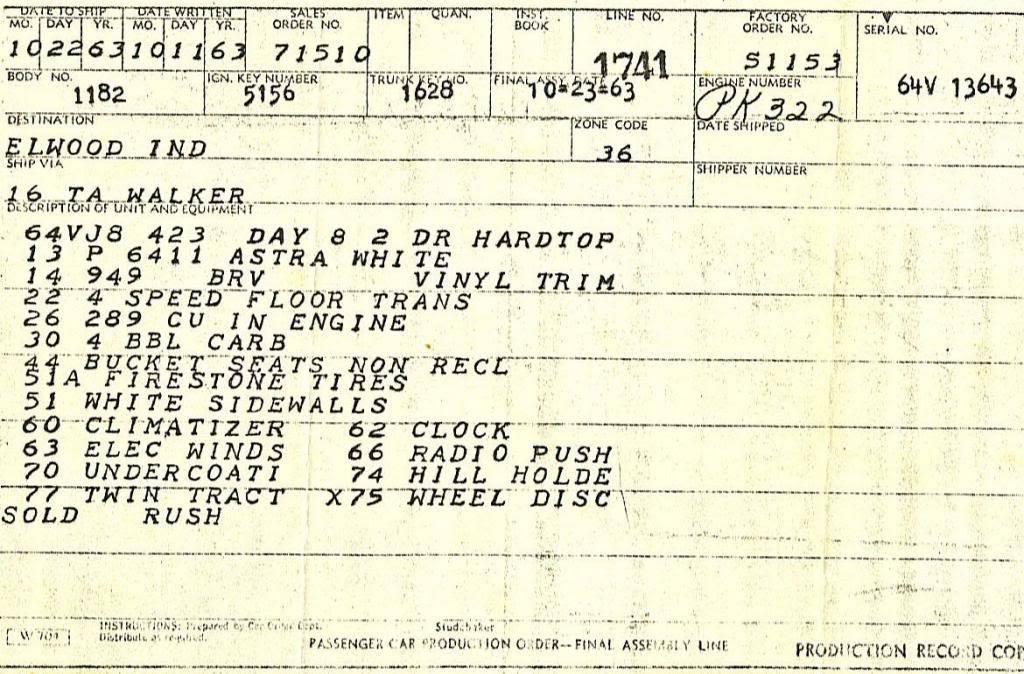 DATE TO SHIP DATE WRITTEN SALES ORDER NO. ITEM QUAN. INST. BOOK LINE NO. FACTORY ORDER NO. SERIAL NO.
MO. DAY YR. MO. DAY YR.
10 22 63 10 11 63 71510 1741 S1153 64V 13643
BODY NO. IGN. KEY NUMBER TRUNK KEY NO. FINAL ASSY. DATE ENGINE NUMBER
1182 5156 1628 10-23-63 PK 322
DESTINATION ZONE CODE DATE SHIPPED
ELWOOD IND 36
SHIP VIA SHIPPER NUMBER
16 TA WALKER
DESCRIPTION OF UNIT AND EQUIPMENT
64VJ8 423 DAY 8 2 DR HARDTOP
13 P 6411 ASTRA WHITE
14 949 BRV VINYL TRIM
22 4 SPEED FLOOR TRANS
26 289 CU IN ENGINE
30 4 BBL CARB
44 BUCKET SEATS NON RECL
51A FIRESTONE TIRES
51 WHITE SIDEWALLS
60 CLIMATIZER 62 CLOCK
63 ELEC WINDS 66 RADIO PUSH
70 UNDERCOATI 74 HILL HOLDE
77 TWIN TRACT X75 WHEEL DISC
SOLD RUSH
INSTRUCTIONS: Prepared by Car Order Dept. Studebaker
W 704 Distribute as required. PASSENGER CAR PRODUCTION ORDER--FINAL ASSEMBLY LINE PRODUCTION RECORD COP